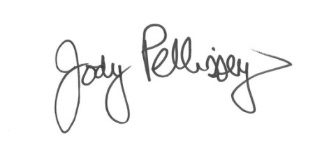 Jody Pellissey